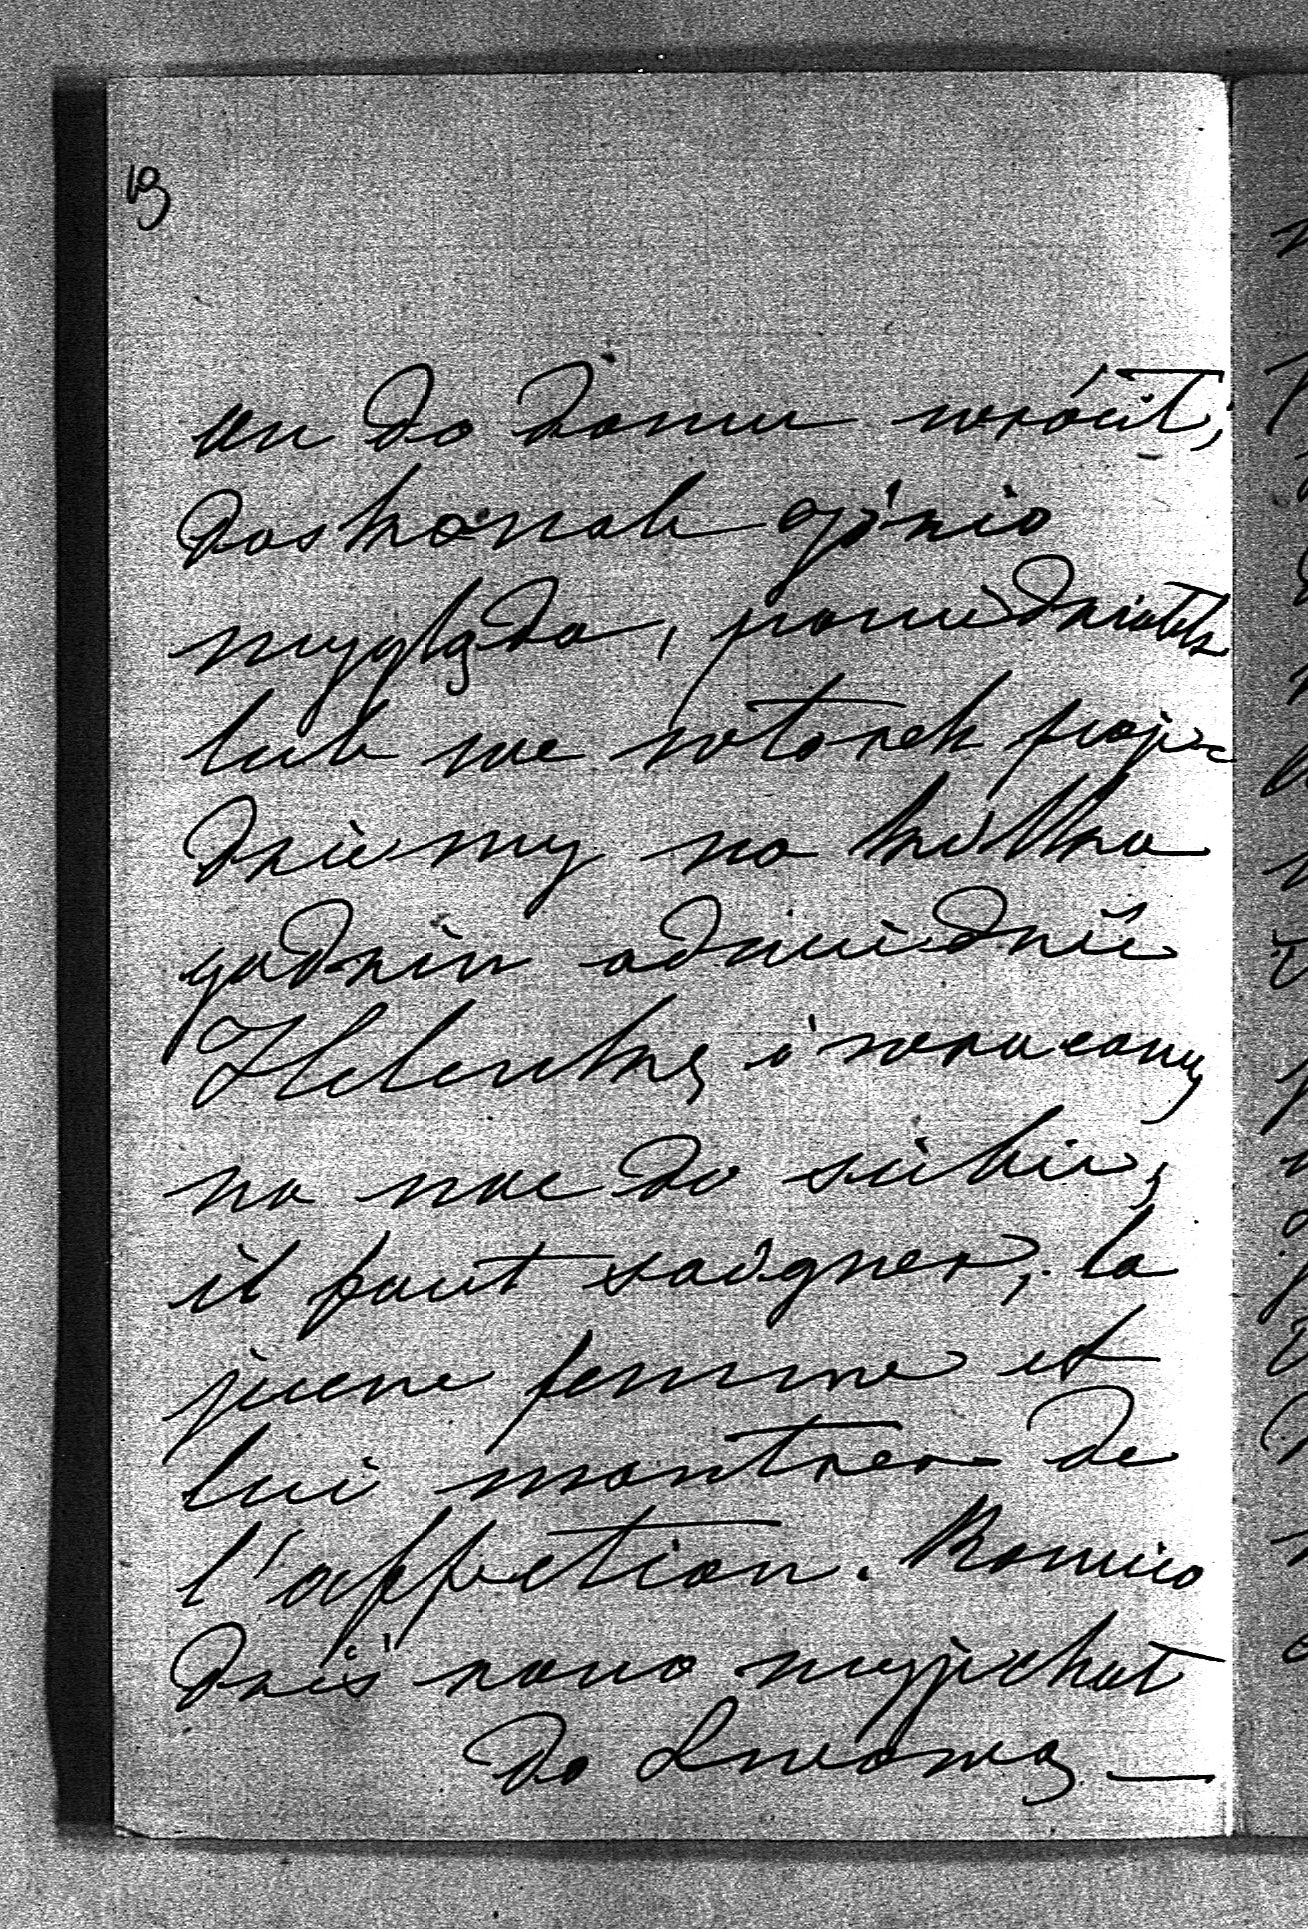 19
len do domu wrócił,
doskonale géniô
wygląda, poniedziałek
lub we wtorek poje-
dziemy na kilka
godzin odwiedzić
Helenkę i wracamy
na noc do siebie,
il faut soigner, la
jeune femme et
lui montrer de
l'affection. Romcio
dziś rano wyjechał
do Lwowa —